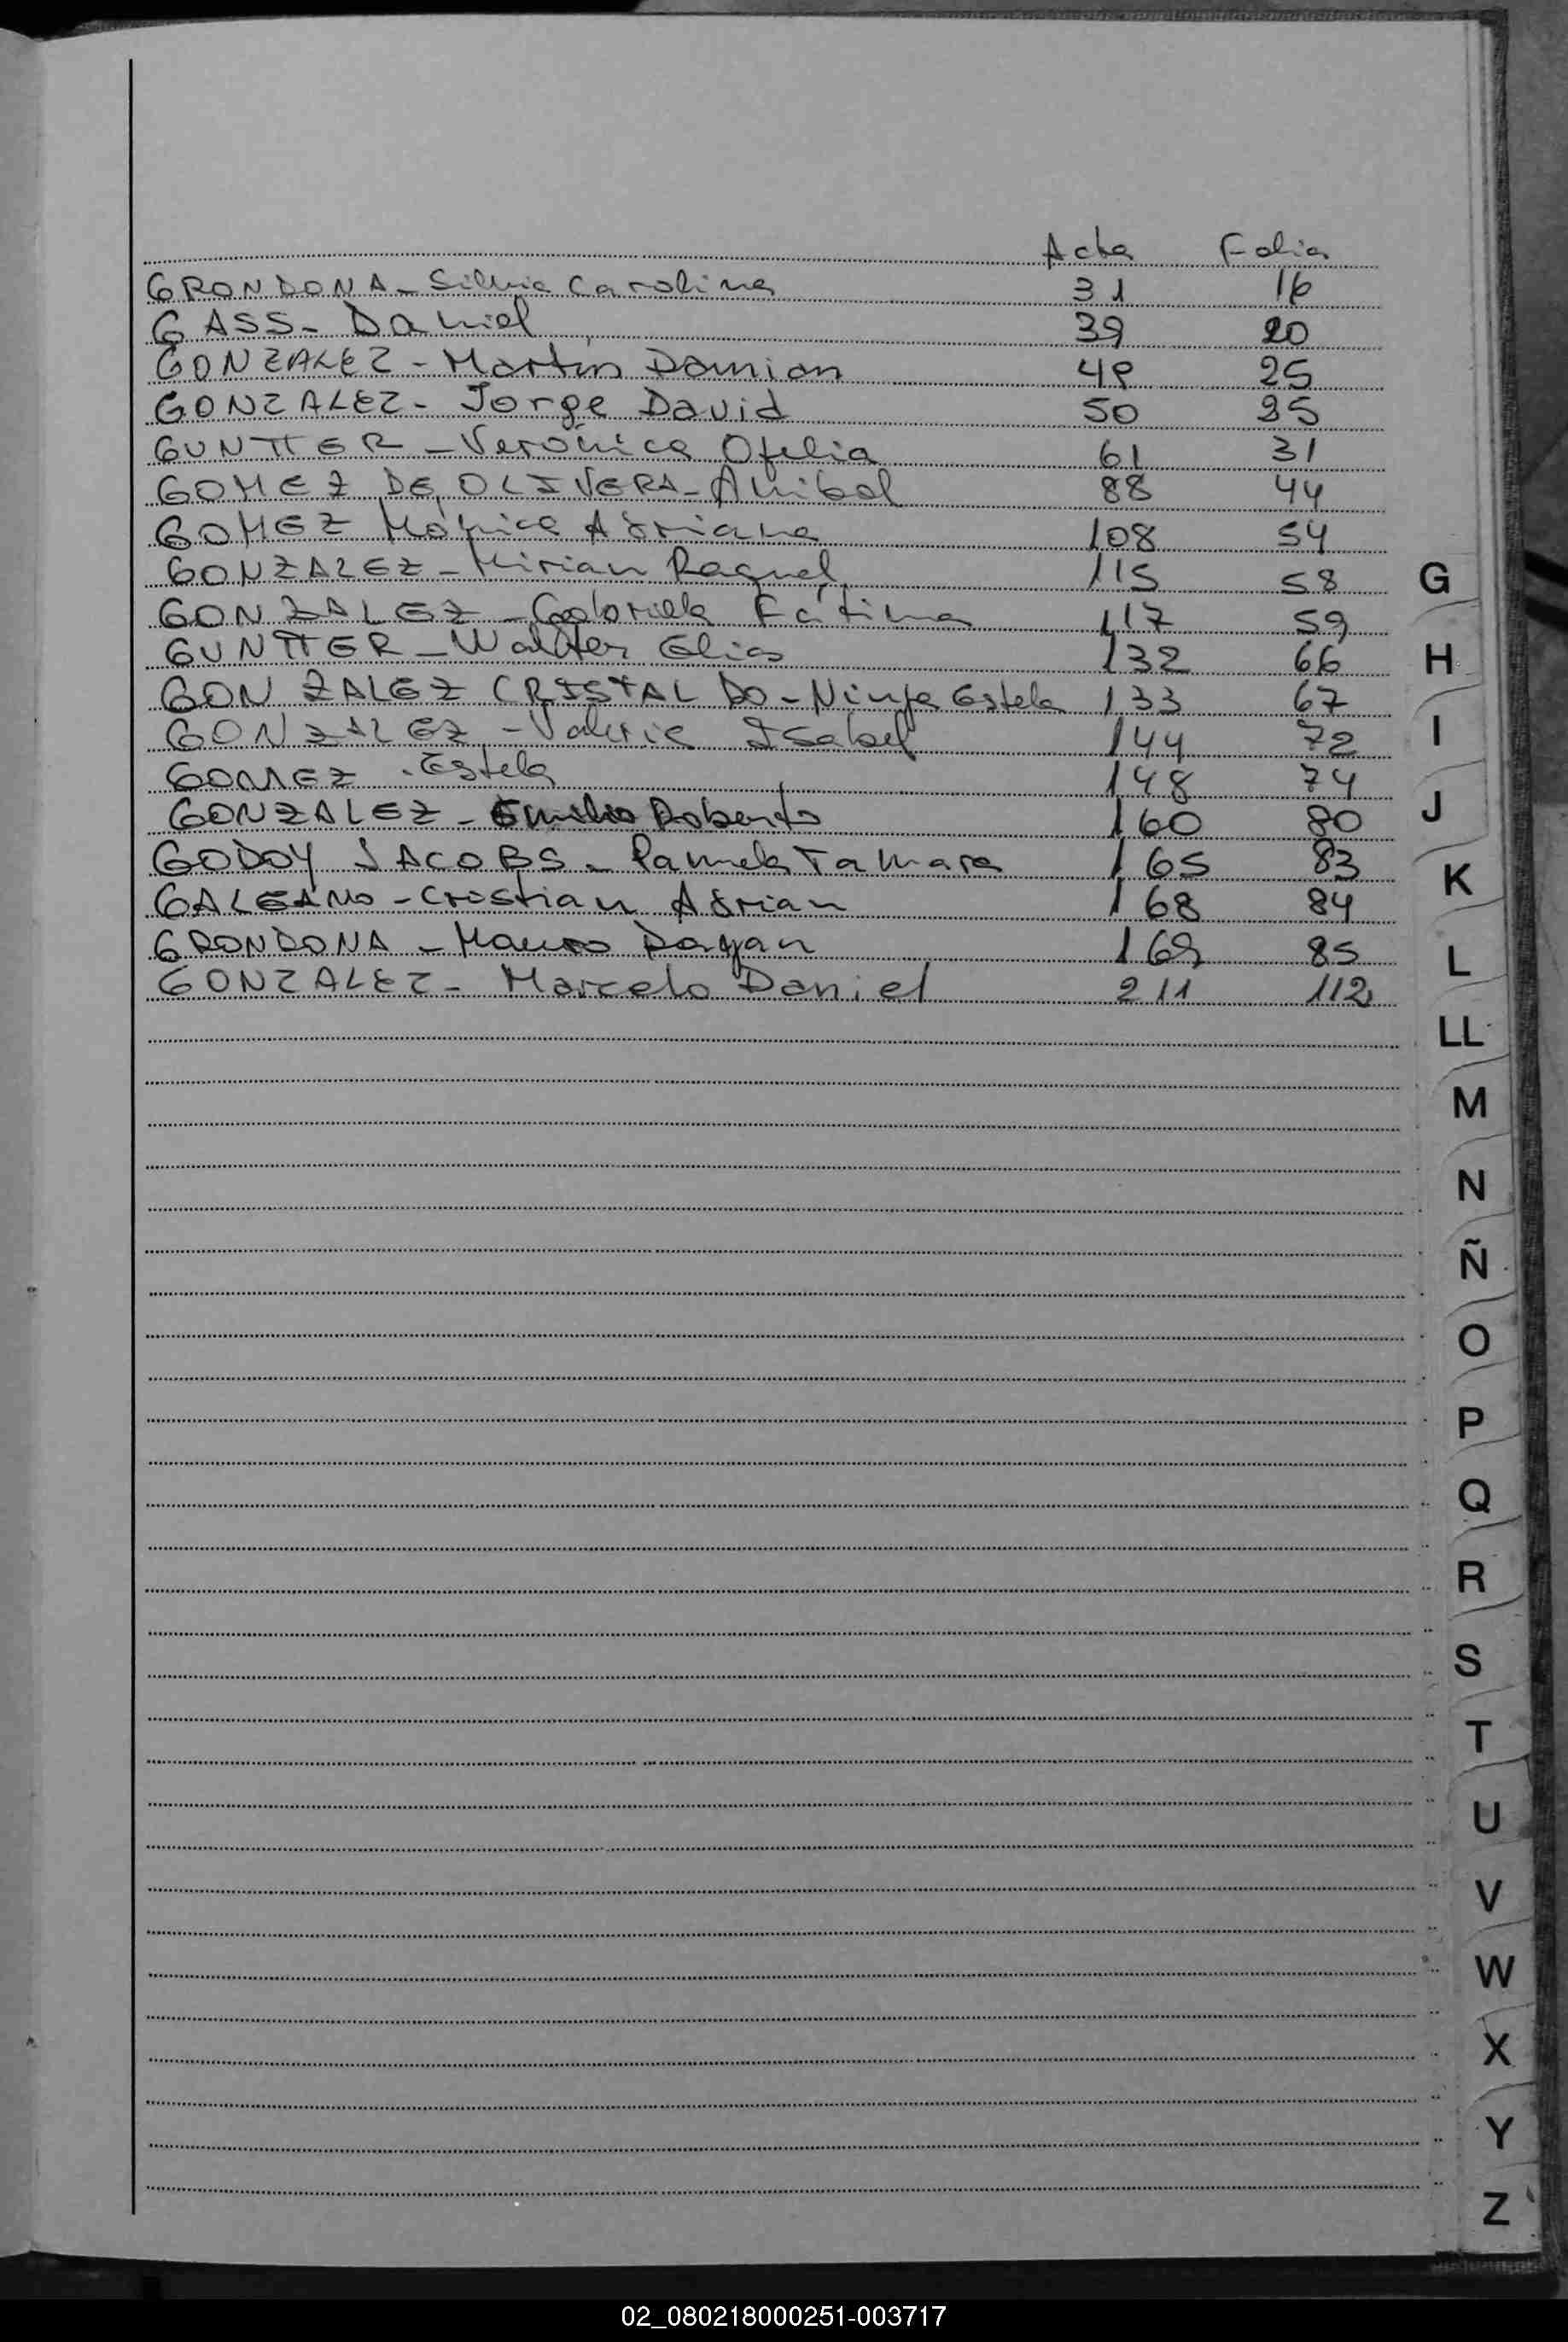 Acta Folio
GRONDONA - Silvia Carolina 31 16
GASS - Daniel 39 20
GONZALEZ - Martín Damian 49 25
GONZALEZ - Jorge David 50 25
GUNTTER - Verónica Ofelia 61 31
GOMEZ DE OLIVERA - Anibal 88 44
GOMEZ Mónica Adriana 108 54
GONZALEZ - Mirian Raquel 115 58
GONZALEZ - Gabriela Fátima 117 59
GUNTTER - Walter Elias 132 66
GONZALEZ CRISTALDO - Ninfa Estela 133 67
GONZALEZ - Valeria Isabel 144 72
GOMEZ - Estela 148 74
GONZALEZ - Emilio Roberto 160 80
GODOY JACOBS - Pamela Tamara 165 83
GALEANO - Cristian Adrian 168 84
GRONDONA - Mauro Dayan 169 85
GONZALEZ - Marcelo Daniel 211 112
G
H
I
J
K
L
LL
M
N
Ñ
O
P
Q
R
S
T
U
V
W
X
Y
Z
02_080218000251-003717